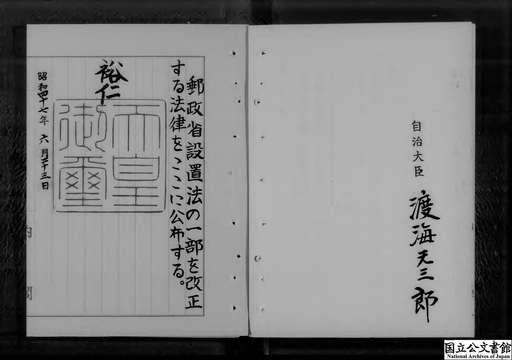 自治大臣
渡海元三郎
郵政省設置法の一部を改正
する法律をここに公布する。
裕仁
天皇
御璽
昭和四十七年六月二十三日
内閣
国立公文書館
National Archives of Japan